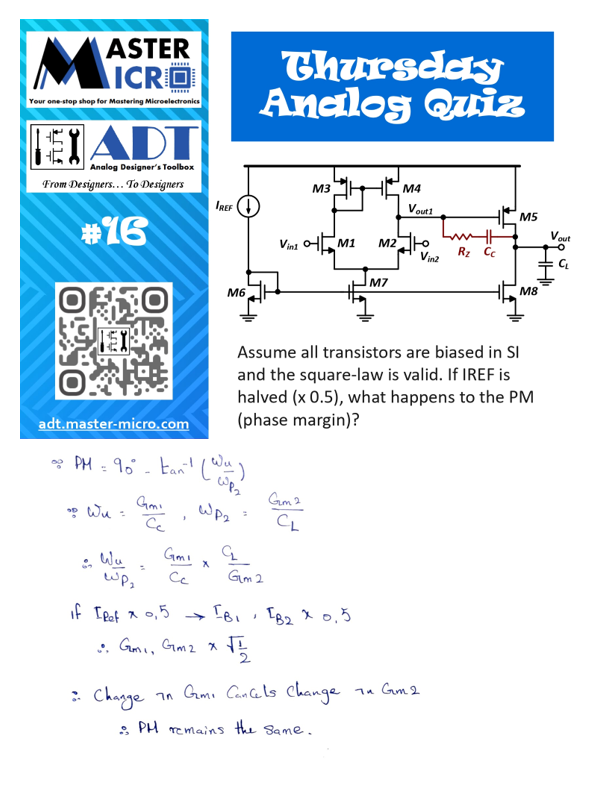 MASTER
MICRO
Your one-stop shop for Mastering Microelectronics
ADT
Analog Designer's Toolbox
From Designers… To Designers
#16
adt.master-micro.com
Thursday
Analog Quiz
M3
M4
I_REF
V_out1
M5
V_out
V_in1
M1
M2
V_in2
R_Z
C_C
C_L
M6
M7
M8
Assume all transistors are biased in SI
and the square-law is valid. If IREF is
halved (x 0.5), what happens to the PM
(phase margin)?
∵ PM = 90° - tan⁻¹ (ωu/ωp2)
∵ ωu = Gm1/Cc , ωp2 = Gm2/CL
∴ ωu/ωp2 = Gm1/Cc × CL/Gm2
if IRef × 0,5 → IB1 , IB2 × 0,5
∴ Gm1, Gm2 × √1/2
∴ Change in Gm1 Cancels Change in Gm2
∴ PM remains the same.